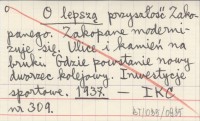 O lepszą przyszłość Zako-
panego. Zakopane moderni-
zuje się. Ulice i kamień na
bruki. Gdzie powstanie nowy
dworzec kolejowy. Inwestycje
sportowe. 1937. — IKC
nr 309.